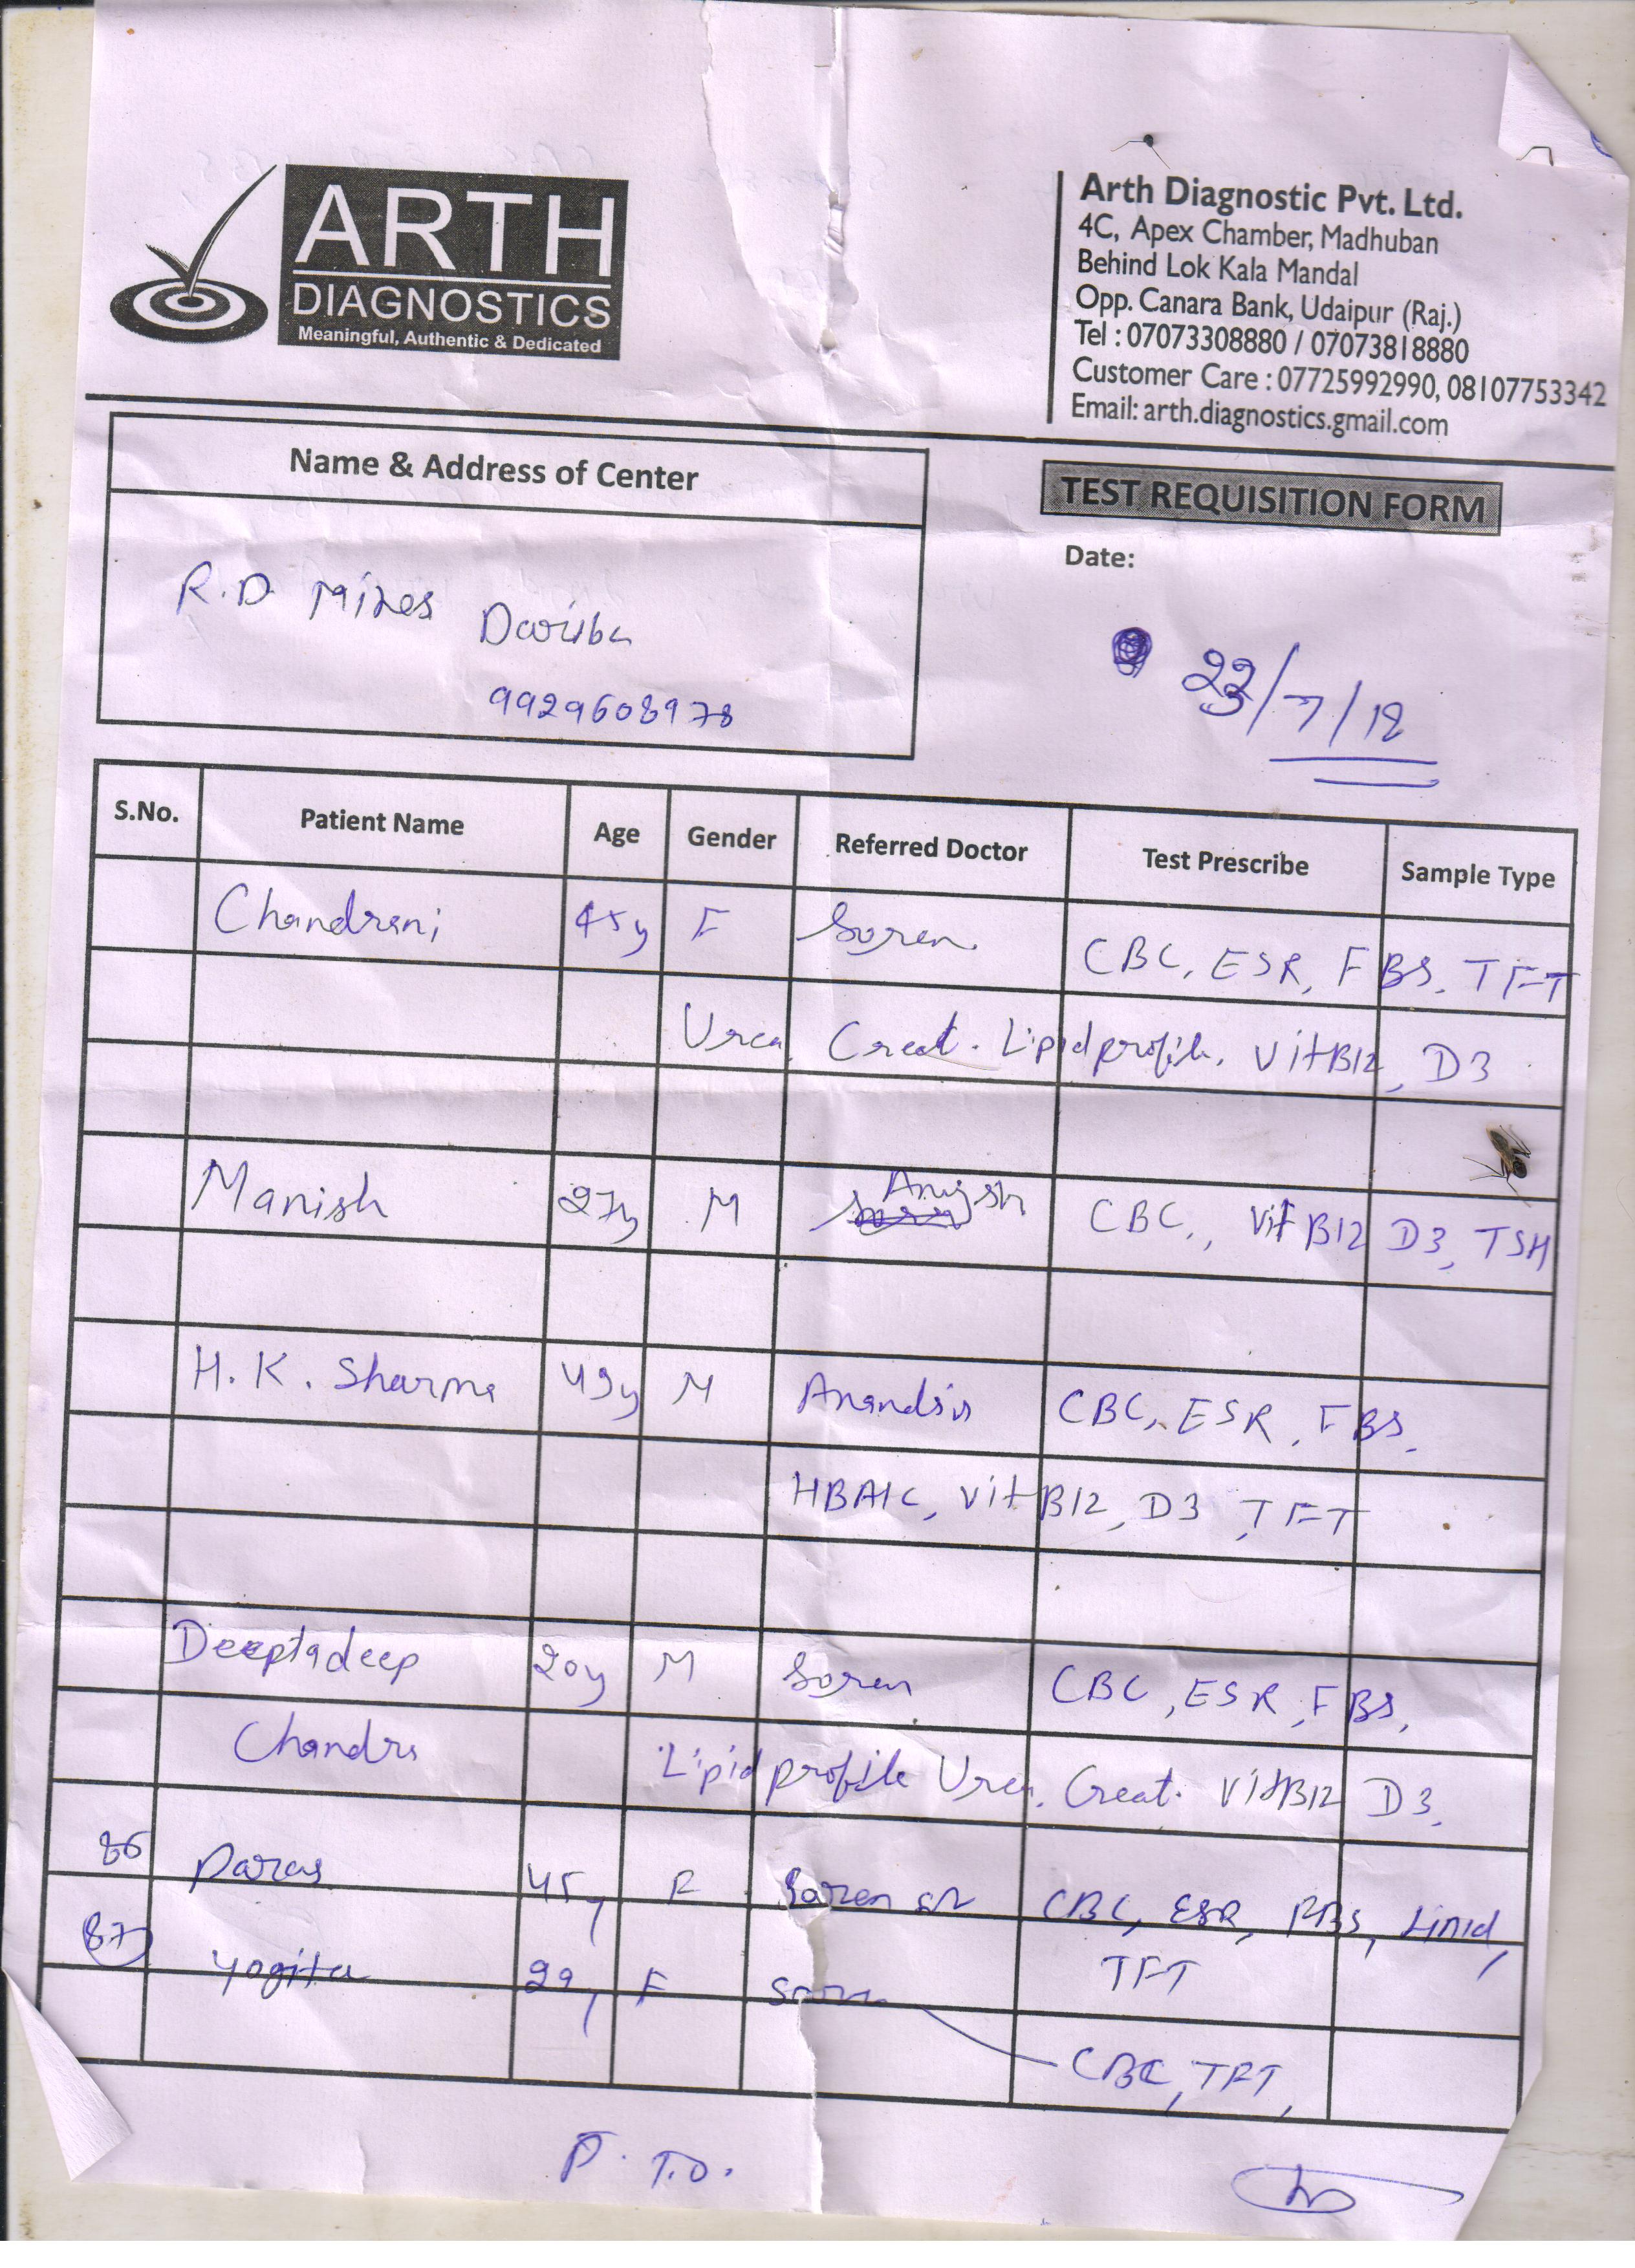 ARTH
DIAGNOSTICS
Meaningful, Authentic & Dedicated
Arth Diagnostic Pvt. Ltd.
4C, Apex Chamber, Madhuban
Behind Lok Kala Mandal
Opp. Canara Bank, Udaipur (Raj.)
Tel : 07073308880 / 07073818880
Customer Care : 07725992990, 08107753342
Email: arth.diagnostics.gmail.com
Name & Address of Center
TEST REQUISITION FORM
Date:
R.D. Mines Dariba
9929608978
/7/18
S.No. Patient Name Age Gender Referred Doctor Test Prescribe Sample Type
Chandrani 45y F Soren CBC, ESR, FBS, TFT
Urea, Creat. Lipid profile, VitB12, D3
Manish 27y M CBC,, Vit B12 D3, TSH
H.K. Sharma 49y M CBC, ESR, FBS,
HBA1C, Vit B12, D3, TFT
Deeptadeep 20y M Soren CBC, ESR, FBS,
Chandra Lipid profile Urea, Creat. VitB12 D3,
86 Paras 45y F Soren sr CBC, ESR, RBS, Lipid,
TFT
87 Yogita 29y F Soren
CBC, TFT,
P.T.O.